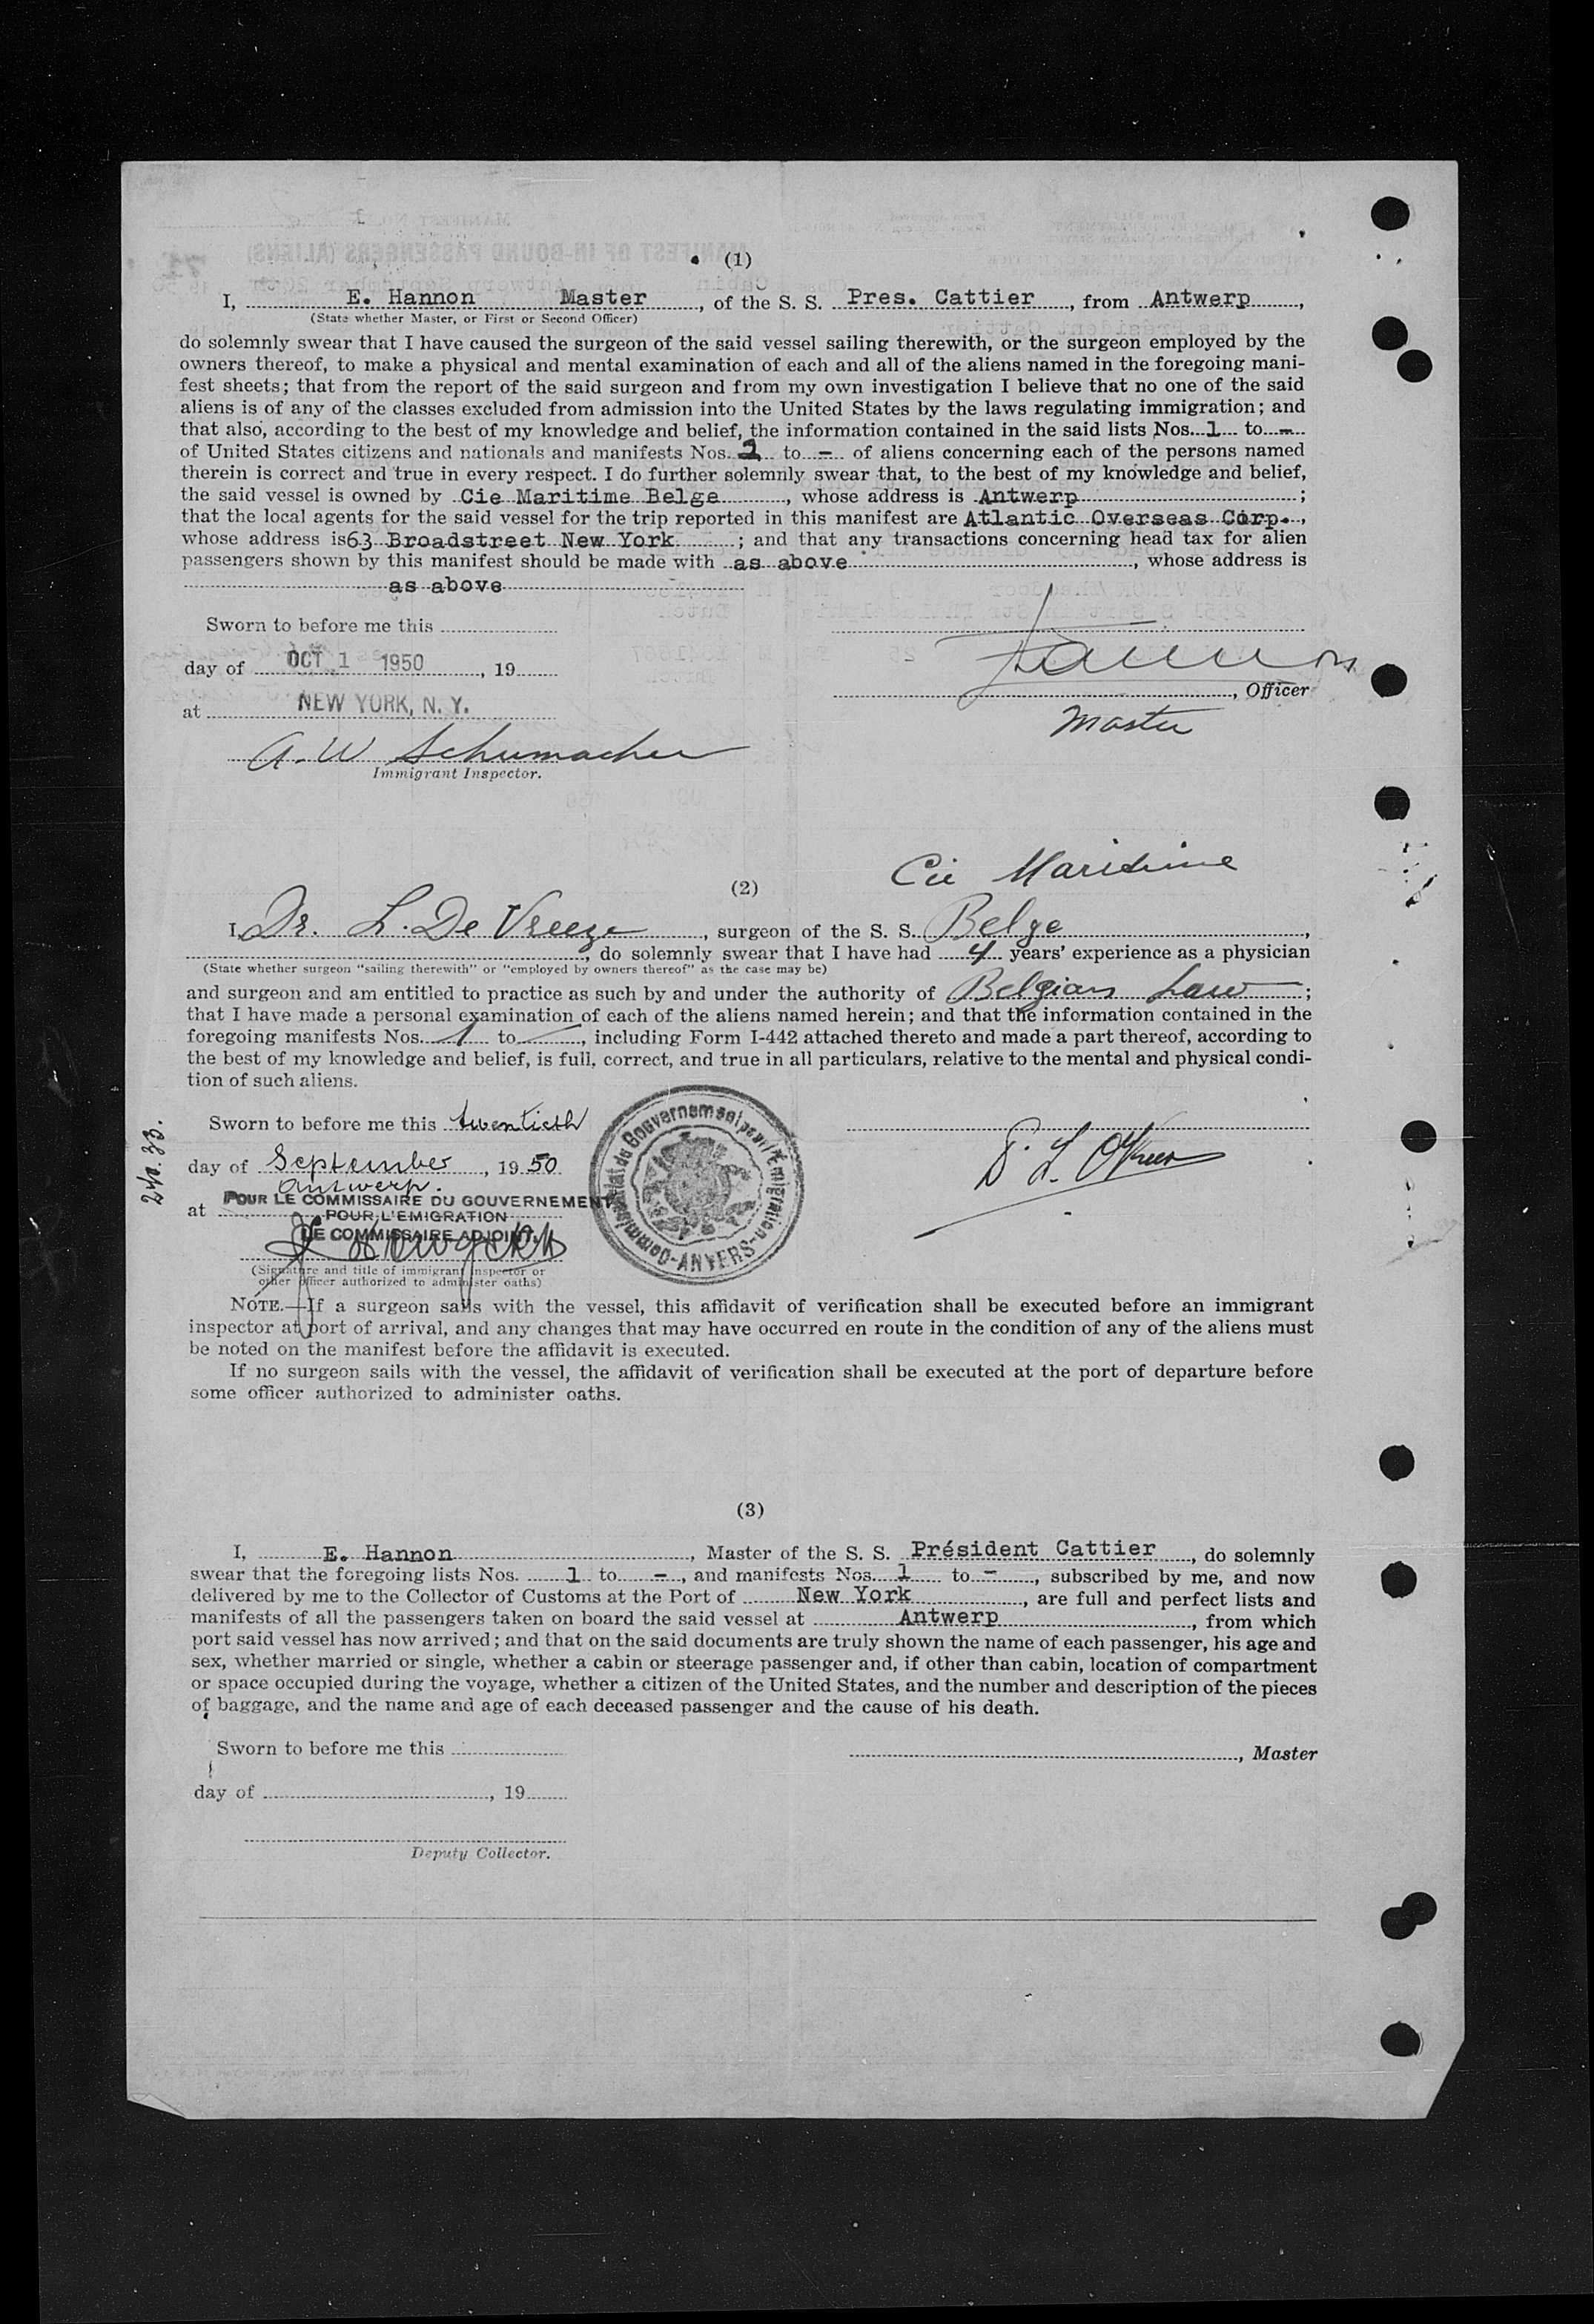 (1)
I, E. Hannon Master, of the S. S. Pres. Cattier, from Antwerp,
(State whether Master, or First or Second Officer)
do solemnly swear that I have caused the surgeon of the said vessel sailing therewith, or the surgeon employed by the
owners thereof, to make a physical and mental examination of each and all of the aliens named in the foregoing mani-
fest sheets; that from the report of the said surgeon and from my own investigation I believe that no one of the said
aliens is of any of the classes excluded from admission into the United States by the laws regulating immigration; and
that also, according to the best of my knowledge and belief, the information contained in the said lists Nos. 1 to -
of United States citizens and nationals and manifests Nos. 1 to - of aliens concerning each of the persons named
therein is correct and true in every respect. I do further solemnly swear that, to the best of my knowledge and belief,
the said vessel is owned by Cie Maritime Belge, whose address is Antwerp;
that the local agents for the said vessel for the trip reported in this manifest are Atlantic Overseas Corp.,
whose address is 63 Broadstreet New York; and that any transactions concerning head tax for alien
passengers shown by this manifest should be made with as above, whose address is
as above
Sworn to before me this
day of OCT 1 1950, 19
Hannon, Officer
at NEW YORK, N. Y.
Master
A. W Schumacher
Immigrant Inspector.
Cie Maritime
(2)
I, Dr. L. De Vreeze, surgeon of the S. S. Belge,
, do solemnly swear that I have had 4 years' experience as a physician
(State whether surgeon "sailing therewith" or "employed by owners thereof" as the case may be)
and surgeon and am entitled to practice as such by and under the authority of Belgian Law;
that I have made a personal examination of each of the aliens named herein; and that the information contained in the
foregoing manifests Nos. 1 to -, including Form I-442 attached thereto and made a part thereof, according to
the best of my knowledge and belief, is full, correct, and true in all particulars, relative to the mental and physical condi-
tion of such aliens.
Sworn to before me this twentieth
day of September, 1950
Antwerp.
at POUR LE COMMISSAIRE DU GOUVERNEMENT
POUR L'EMIGRATION
LE COMMISSAIRE ADJOINT.
Commissariat du Gouvernement pour l'Emigration -ANVERS-
(Signature and title of immigrant inspector or
other officer authorized to administer oaths)
NOTE.—If a surgeon sails with the vessel, this affidavit of verification shall be executed before an immigrant
inspector at port of arrival, and any changes that may have occurred en route in the condition of any of the aliens must
be noted on the manifest before the affidavit is executed.
If no surgeon sails with the vessel, the affidavit of verification shall be executed at the port of departure before
some officer authorized to administer oaths.
(3)
I, E. Hannon, Master of the S. S. Président Cattier, do solemnly
swear that the foregoing lists Nos. 1 to -, and manifests Nos. 1 to -, subscribed by me, and now
delivered by me to the Collector of Customs at the Port of New York, are full and perfect lists and
manifests of all the passengers taken on board the said vessel at Antwerp, from which
port said vessel has now arrived; and that on the said documents are truly shown the name of each passenger, his age and
sex, whether married or single, whether a cabin or steerage passenger and, if other than cabin, location of compartment
or space occupied during the voyage, whether a citizen of the United States, and the number and description of the pieces
of baggage, and the name and age of each deceased passenger and the cause of his death.
Sworn to before me this
, Master
day of , 19
Deputy Collector.